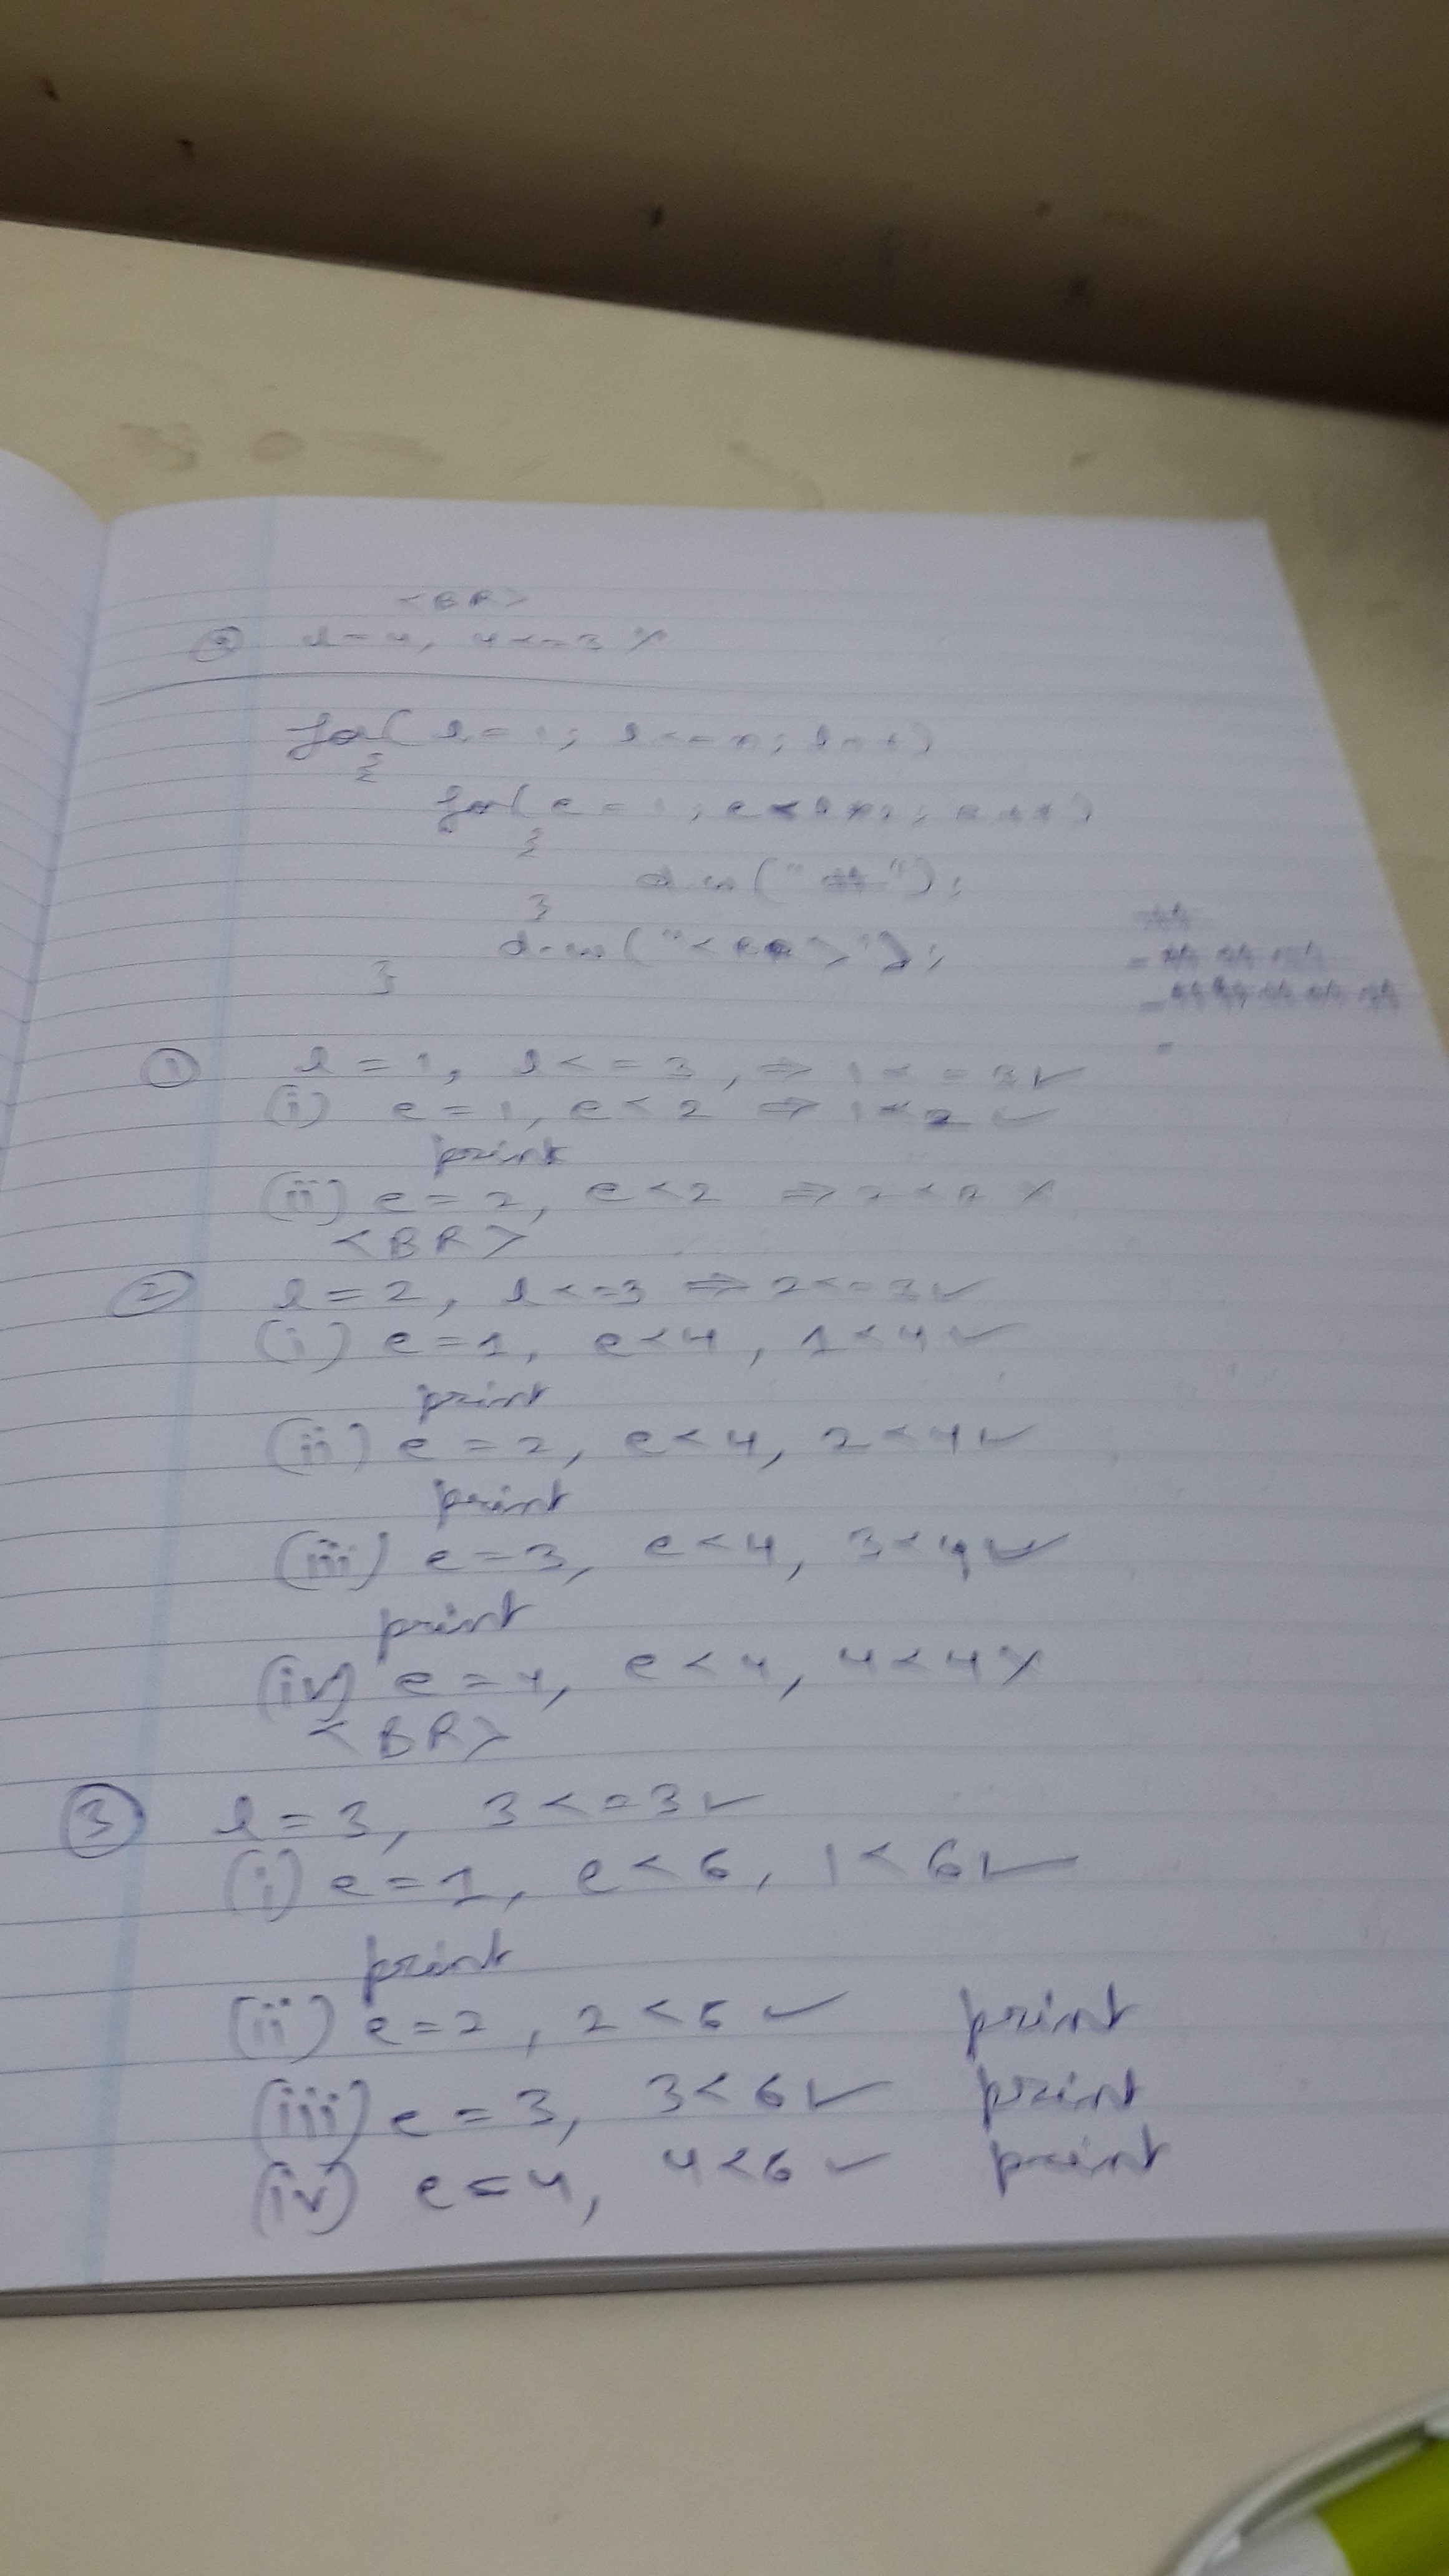 <BR>
l=4, 4<=3 ✗
for(l=1; l<=n; l++)
{
for(e=1; e<l*2; e++)
{
d.w("#");
}
d.w("<BR>");
}
#
# # #
# # # # #
① l=1, l<=3, ⇒ 1<=3 ✓
(i) e=1, e<2 ⇒ 1<2 ✓
print
(ii) e=2, e<2 ⇒ 2<2 ✗
<BR>
② l=2, l<=3 ⇒ 2<=3 ✓
(i) e=1, e<4, 1<4 ✓
print
(ii) e=2, e<4, 2<4 ✓
print
(iii) e=3, e<4, 3<4 ✓
print
(iv) e=4, e<4, 4<4 ✗
<BR>
③ l=3, 3<=3 ✓
(i) e=1, e<6, 1<6 ✓
print
(ii) e=2, 2<6 ✓ print
(iii) e=3, 3<6 ✓ print
(iv) e=4, 4<6 ✓ print